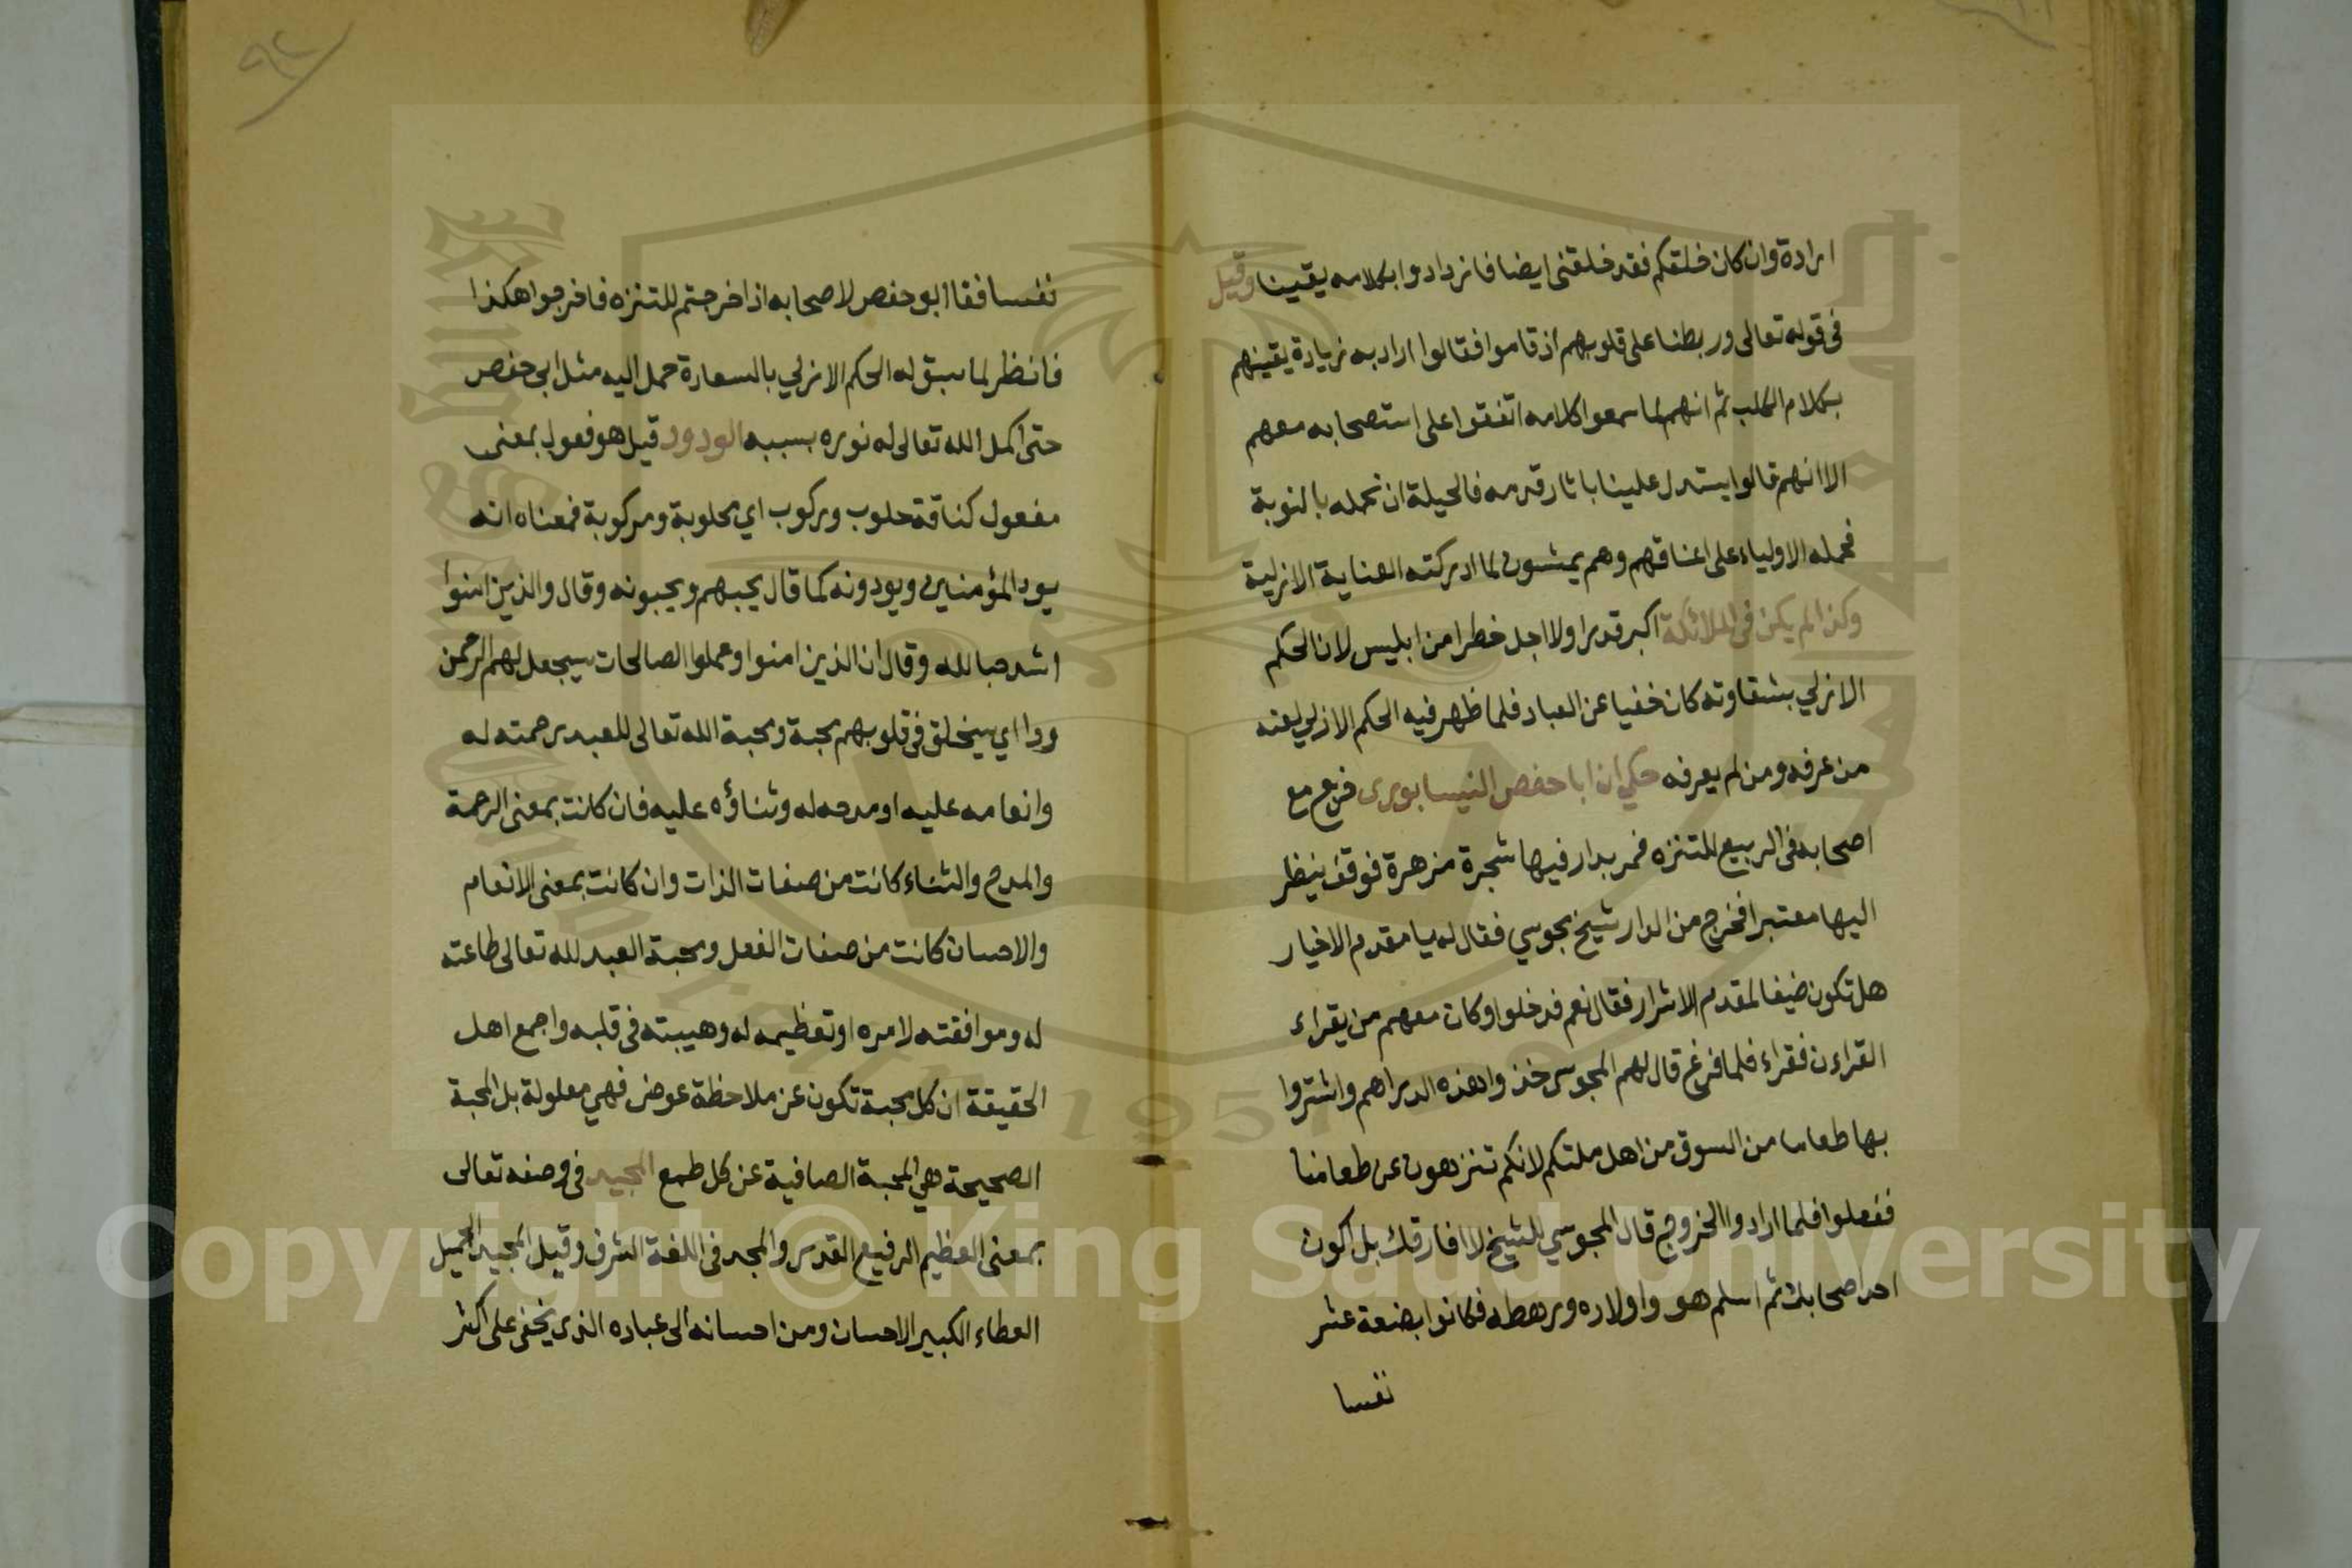 ارادة وان كان خلقكم فقد خلقني ايضا فازدادوا بكلامه يقينا وقيل
في قوله تعالى وربطنا على قلوبهم اذ قاموا فقالوا اراد به زيادة يقينهم
بكلام الكلب ثم انهم لما سمعوا كلامه اتفقوا على استصحابه معهم
الا انهم قالوا يستدل علينا باثار قدمه فالحيلة ان نحمله بالنوبة
فحمله الاولياء على اعناقهم وهم يمشون لما ادركته العناية الازلية
وكذا لم يكن في الملائكة اكبر قدرا ولا اجل خطرا من ابليس لان الحكم
الازلي بشقاوته كان خفيا عن العباد فلما ظهر فيه الحكم الازلي لعنه
من عرفه ومن لم يعرفه حكي ان ابا حفص النيسابوري خرج مع
اصحابه في الربيع للتنزه فمر بدار فيها شجرة مزهرة فوقف ينظر
اليها معتبرا فخرج من الدار شيخ مجوسي فقال له يا مقدم الاخيار
هل تكون ضيفا لمقدم الاشرار فقال نعم فدخلوا وكان معهم من يقراء
القراءن فقراء فلما فرغ قال لهم المجوسي خذوا هذه الدراهم واشتروا
بها طعاما من السوق من اهل ملتكم لانكم تنزهون عن طعامنا
ففعلوا فلما ارادوا الخروج قال المجوسي للشيخ لا افارقك بل اكون
احد اصحابك ثم اسلم هو واولاده ورهطه فكانوا بضعة عشر
نفسا
٩٢
نفسا فقال ابو حفص لاصحابه اذا خرجتم للتنزه فاخرجوا هكذا
فانظر لما سبق له الحكم الازلي بالسعادة حمل اليه مثل ابي حفص
حتى اكمل الله تعالى له نوره بسببه الودود قيل هو فعول بمعنى
مفعول كناقة حلوب وركوب اي محلوبة ومركوبة فمعناه انه
يود المؤمنين ويودونه كما قال يحبهم ويحبونه وقال والذين امنوا
اشد حبا لله وقال ان الذين امنوا وعملوا الصالحات سيجعل لهم الرحمن
ودا اي سيخلق في قلوبهم محبة ومحبة الله تعالى للعبد رحمته له
وانعامه عليه او مدحه له وثناؤه عليه فان كانت بمعنى الرحمة
والمدح والثناء كانت من صفات الذات وان كانت بمعنى الانعام
والاحسان كانت من صفات الفعل ومحبة العبد لله تعالى طاعته
له وموافقته لامره او تعظيمه له وهيبته في قلبه واجمع اهل
الحقيقة ان كل محبة تكون عن ملاحظة عوض فهي معلولة بل المحبة
الصحيحة هي المحبة الصافية عن كل طمع المجيد في وصفه تعالى
بمعنى العظيم الرفيع القدر والمجد في اللغة الشرف وقيل المجيد الجميل
العطاء الكبير الاحسان ومن احسانه الى عباده الذي يخفى على اكثر
Copyright © King Saud University
1957